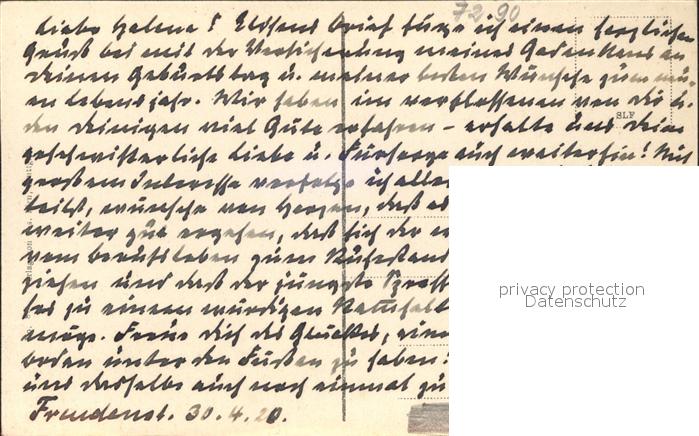 72 90
Liebe Helene! Elisens Brief füge ich einen herzlichen
Gruß bei mit der Versicherung meines Gedenkens an
deinen Geburtstag u. meiner besten Wünsche zum neu-
en Lebensjahr. Wir haben im verflossenen von dir u.
den Deinigen viel Gute erfahren – erhalte uns deine
SLF
geschwisterliche Liebe u. Fürsorge auch weiterhin! Mit
großem Interesse verfolge ich alles
teilt, wünsche von Herzen, daß es
weiter gut ergehen, daß sich der
vom Berufsleben zum Ruhestand
ziehen und daß der jüngste Spross
zu einem würdigen
möge. Freue dich des Glückes,
Boden unter den Füßen zu haben!
und dasselbe auch noch einmal zu
Freudenst. 30.4.20.
privacy protection
Datenschutz